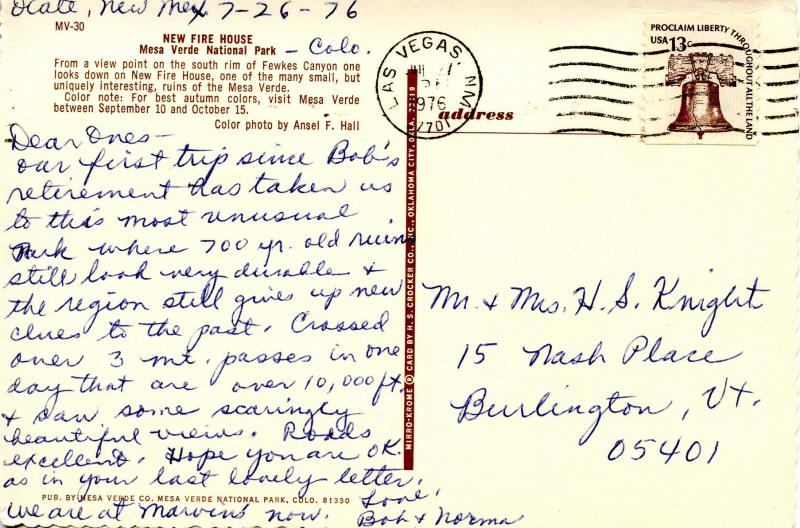 Ocate, New Mex 7-26-76
MV-30
NEW FIRE HOUSE
Mesa Verde National Park - Colo.
From a view point on the south rim of Fewkes Canyon one
looks down on New Fire House, one of the many small, but
uniquely interesting, ruins of the Mesa Verde.
Color note: For best autumn colors, visit Mesa Verde
between September 10 and October 15.
Color photo by Ansel F. Hall
Dear Ones-
Our first trip since Bob's
retirement has taken us
to this most unusual
Park where 700 yr. old ruins
still look very durable &
the region still gives up new
clues to the past. Crossed
over 3 mt. passes in one
day that are over 10,000 ft.
& saw some scaringly
beautiful views. Roads
excellent. Hope you are OK
as in your last lovely letter.
PUB. BY MESA VERDE CO. MESA VERDE NATIONAL PARK, COLO. 81330
We are at Marvin's now. Love,
Bob & Norma
MIRRO-KROME ® CARD BY H. S. CROCKER CO., INC., OKLAHOMA CITY, OKLA. 73119
LAS VEGAS, NM
1976
87701
address
PROCLAIM LIBERTY THROUGHOUT ALL THE LAND
USA 13c
Mr. & Mrs. H. S. Knight
15 Nash Place
Burlington, Vt.
05401